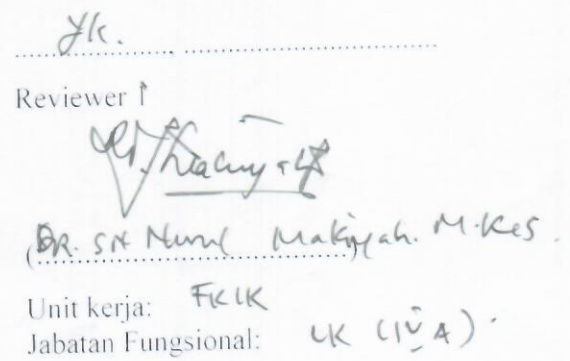 Yk. ................, ........................................
Reviewer 1
(DR. SN Nurul Makiyah. M.Kes.)
Unit kerja: FKIK
Jabatan Fungsional: LK (IV A).